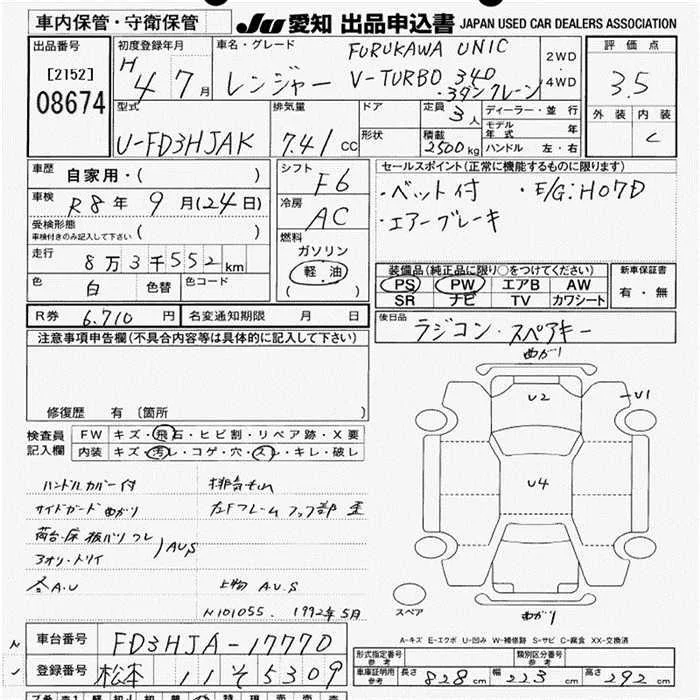 車内保管・守衛保管
JU 愛知 出品申込書 JAPAN USED CAR DEALERS ASSOCIATION
出品番号
[2152]
08674
初度登録年月
H 4 7月
車名・グレード
レンジャー
FURUKAWA UNIC
V-TURBO 340
・3ダンクレーン
2WD
・
4WD
評価点
3.5
外装 内装
C
型式
U-FD3HJAK
排気量
7.41 CC
ドア
形状
定員
3人
積載
2500kg
ディーラー・並行
モデル年式 年
ハンドル 左・右
車歴 自家用・( )
車検 R8年9月(24日)
受検形態
車検付きのみ記入して下さい ( )
走行 8万3千552km
色 白 色替 色コード
シフト
F6
冷房
AC
燃料
ガソリン
軽・油
( )
セールスポイント(正常に機能するものに限ります)
・ベット付 ・E/G:H07D
・エアーブレーキ
装備品(純正品に限り○をつけてください)
PS PW エアB AW
SR ナビ TV カワシート
新車保証書
有・無
R券 6.710円 名変通知期限 月 日
後日品
ラジコン・スペアキー
注意事項申告欄(不具合内容等は具体的に記入して下さい)
修復歴 有〔箇所 〕
検査員記入欄
FW キズ・飛石・ヒビ割・リペア跡・X要
内装 キズ・汚れ・コゲ・穴・スレ・キレ・破レ
ハンドルカバー付
サイドガード曲がり
荷台・床板バツフレ
アオリ・トリイ
AUS
各A.U
排気もれ
左Fフレームフック部歪
上物 A.U.S
N101055. 1992年5月
曲がり
U2
U1
U4
スペア
曲がり
A-キズ E-エクボ U-凹み W-補修跡 S-サビ C-腐食 XX-交換済
車台番号 FD3HJA-17770
登録番号 松本 11そ5309
形式指定番号
参考
類別区分番号
参考
車庫証明用
参考
長さ 828cm 幅 223cm 高さ 292cm